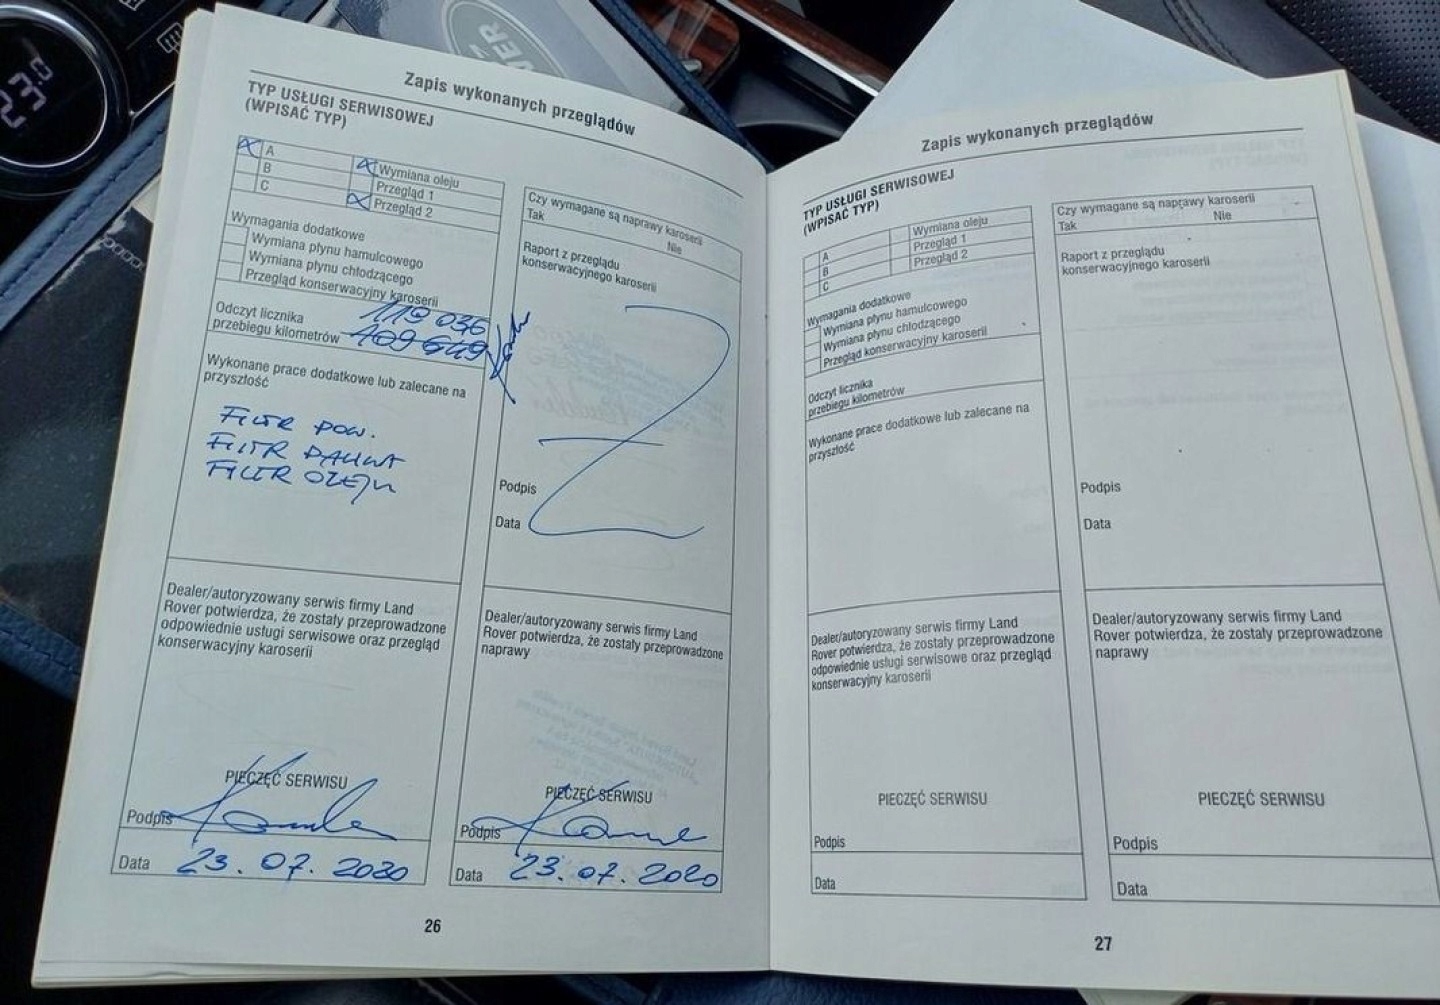 23.0
VER
Zapis wykonanych przeglądów
TYP USŁUGI SERWISOWEJ
(WPISAĆ TYP)
A
Wymiana oleju
B
Przegląd 1
C
Przegląd 2
Wymagania dodatkowe
Wymiana płynu hamulcowego
Wymiana płynu chłodzącego
Przegląd konserwacyjny karoserii
Odczyt licznika
przebiegu kilometrów
119 036
109 649
Wykonane prace dodatkowe lub zalecane na
przyszłość
FILTR POW.
FILTR PALIWA
FILTR OLEJU
Dealer/autoryzowany serwis firmy Land
Rover potwierdza, że zostały przeprowadzone
odpowiednie usługi serwisowe oraz przegląd
konserwacyjny karoserii
PIECZĘĆ SERWISU
Podpis
Data 23.07.2020
Czy wymagane są naprawy karoserii
Tak Nie
Raport z przeglądu
konserwacyjnego karoserii
Podpis
Data
Dealer/autoryzowany serwis firmy Land
Rover potwierdza, że zostały przeprowadzone
naprawy
PIECZĘĆ SERWISU
Podpis
Data 23.07.2020
26
Zapis wykonanych przeglądów
TYP USŁUGI SERWISOWEJ
(WPISAĆ TYP)
A
Wymiana oleju
B
Przegląd 1
C
Przegląd 2
Wymagania dodatkowe
Wymiana płynu hamulcowego
Wymiana płynu chłodzącego
Przegląd konserwacyjny karoserii
Odczyt licznika
przebiegu kilometrów
Wykonane prace dodatkowe lub zalecane na
przyszłość
Dealer/autoryzowany serwis firmy Land
Rover potwierdza, że zostały przeprowadzone
odpowiednie usługi serwisowe oraz przegląd
konserwacyjny karoserii
PIECZĘĆ SERWISU
Podpis
Data
Czy wymagane są naprawy karoserii
Tak Nie
Raport z przeglądu
konserwacyjnego karoserii
Podpis
Data
Dealer/autoryzowany serwis firmy Land
Rover potwierdza, że zostały przeprowadzone
naprawy
PIECZĘĆ SERWISU
Podpis
Data
27